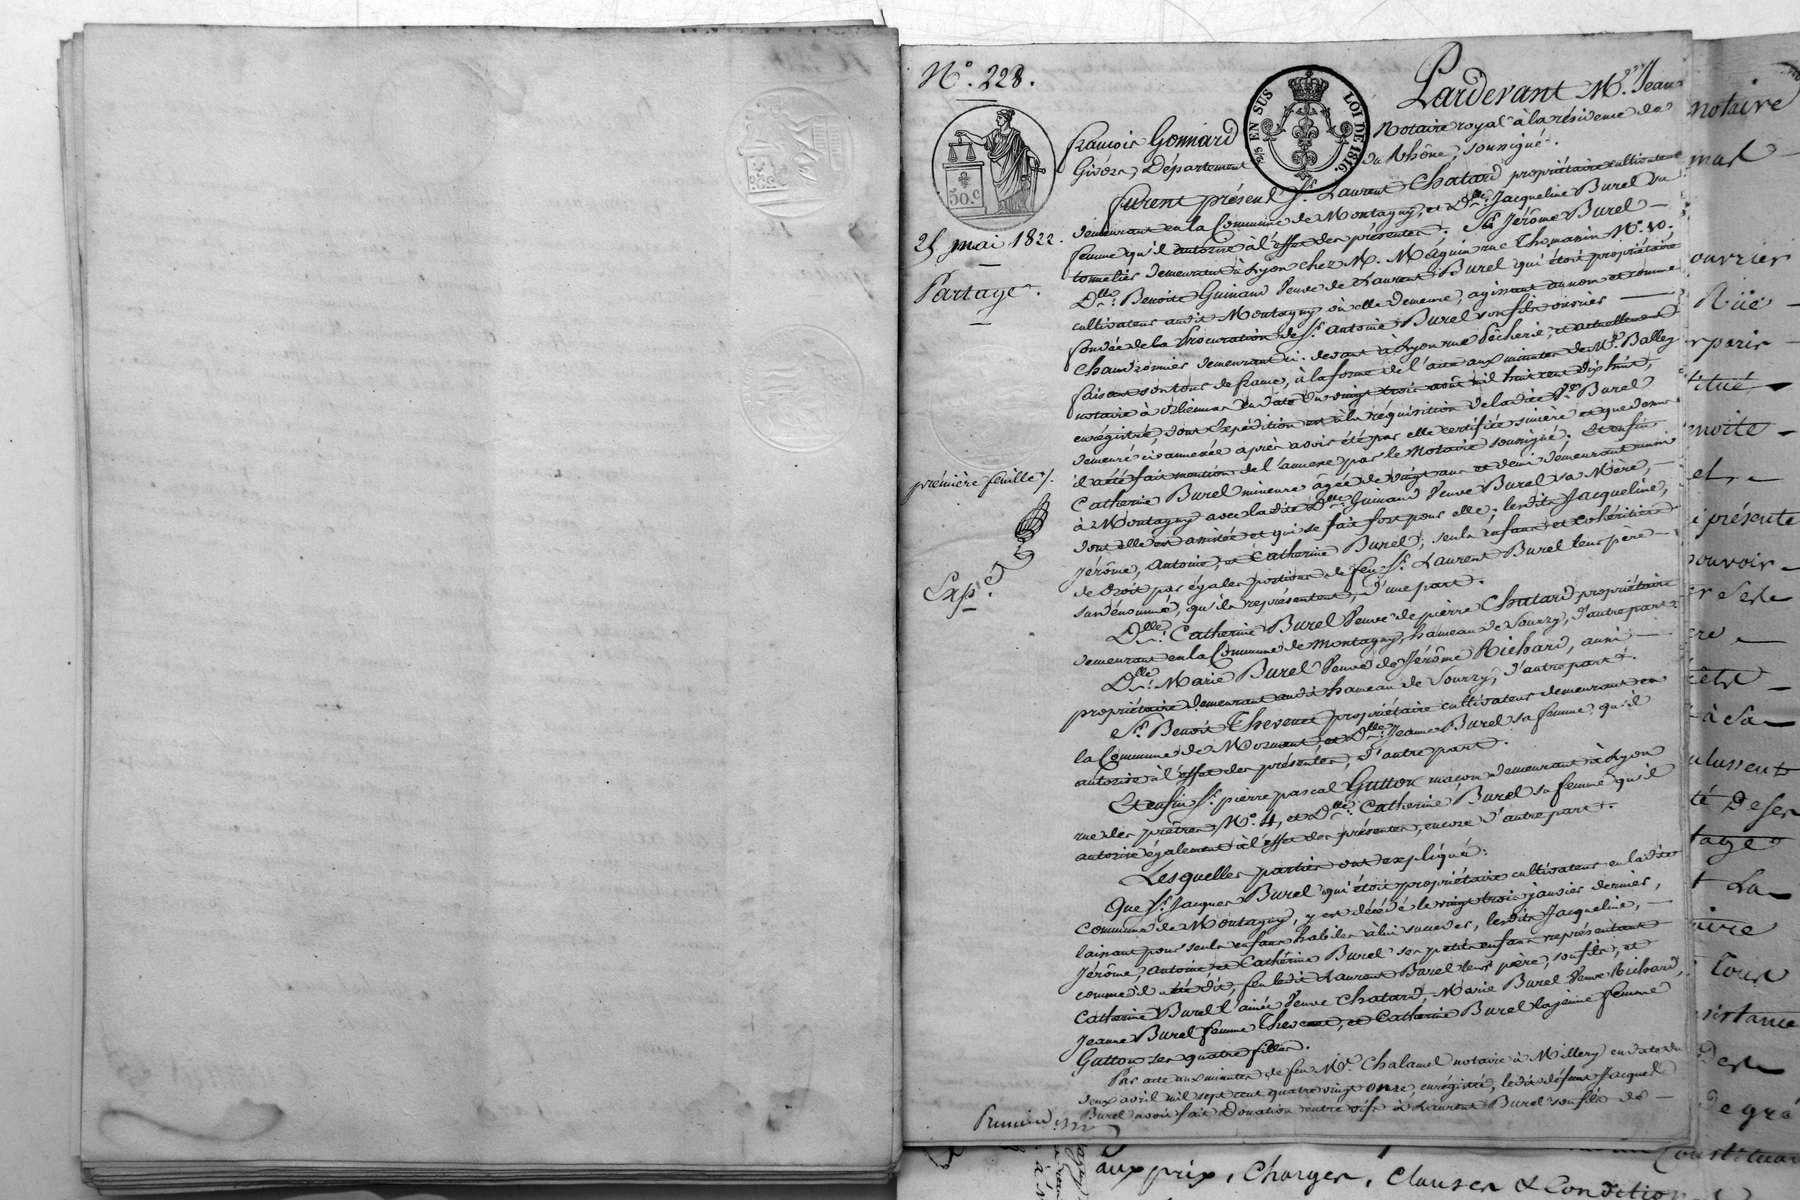 N.º 228.
EN SUS
LOI DE 1816.
50.c
25 mai 1822.
Partage.
première feuille /.
Exp.é
Pardevant M.e Jean
François Gonnard Notaire royal à la résidence de
Givors, Département du Rhône, soussigné.
Furent présens S.r Laurent Chatard propriétaire cultivateur
demeurant en la Commune de Montagny, et D.lle Jacqueline Burel sa
femme qu'il autorise à l'effet des présentes. S.r Jérôme Burel
tonnelier demeurant à Lyon chez M. Méquin rue Thomassin N.º 10.
D.lle Benoite Guinand Veuve de Laurent Burel qui étoit propriétaire
cultivateur audit Montagny où elle demeure, agissant au nom et comme
fondée de la Procuration de S.r Antoine Burel son fils ouvrier
Chaudronnier demeurant ci-devant à Lyon rue Pêcherie, et actuellement
faisant son tour de france, à la forme de l'acte aux minutes de M.e Balley
notaire à Orliénas en date du vingt trois août mil huit cent dix huit,
enregistré, dont Expédition est à la réquisition de ladite V.e Burel
demeuré ci annexée après avoir été par elle certifiée sincère et que dessus
il a été fait mention de l'annexe par le Notaire soussigné; Et enfin
Catherine Burel mineure agée de vingt ans et demi demeurant aussi
à Montagny avec ladite D.lle Guinand Veuve Burel sa Mère,
dont elle est assistée et qui se fait fort pour elle; lesdits Jacqueline,
Jérôme, Antoine, et Catherine Burel, seuls enfans et cohéritiers
de Droit par égales portions de feu S.r Laurent Burel leur père
susdénommé, qu'ils représentent, d'une part.
D.lle Catherine Burel Veuve de pierre Chatard propriétaire
demeurant en la Commune de Montagny, hameau de Sourzy, d'autre part.
D.lle Marie Burel Veuve de Jérôme Richard, aussi
propriétaire demeurant audit hameau de Sourzy, d'autre part.
S.r Benoit Thevenet propriétaire cultivateur demeurant en
la Commune de Mornant, et D.lle Jeanne Burel sa femme, qu'il
autorise à l'effet des présentes, d'autre part.
Et enfin S.r pierre pascal Gutton maçon demeurant à Lyon
rue des prêtres N.º 4, et D.lle Catherine Burel sa femme qu'il
autorise également à l'effet des présentes, encore d'autre part.
Lesquelles parties ont expliqué:
Que S.r Jacques Burel qui étoit propriétaire cultivateur en ladite
Commune de Montagny, y est décédé le vingt trois janvier dernier,
laissant pour seuls enfans habiles à lui succéder, lesdits Jacqueline,
Jérôme, Antoine, et Catherine Burel ses petits enfans représentant
comme il a été dit, feu ledit Laurent Burel leur père, son fils, et
Catherine Burel l'ainée Veuve Chatard, Marie Burel Veuve Richard,
Jeanne Burel femme Thevenet, et Catherine Burel la jeune femme
Gutton ses quatre filles.
Par acte aux minutes de feu M.e Chalamel notaire à Millery en date du
deux avril mil sept cent quatre vingt onze, enregistré, ledit défunt Jacques
Burel avoit fait Donation entre vifs à Laurent Burel son fils de
notaire
ouvrier
Rüe
paris
titué
enoite
présente
pouvoir
à Sa
ulussent
té De ses
tage
La
Tour
sistance
De gré
Constituan
aux prix, Charges, Clauses & Condition